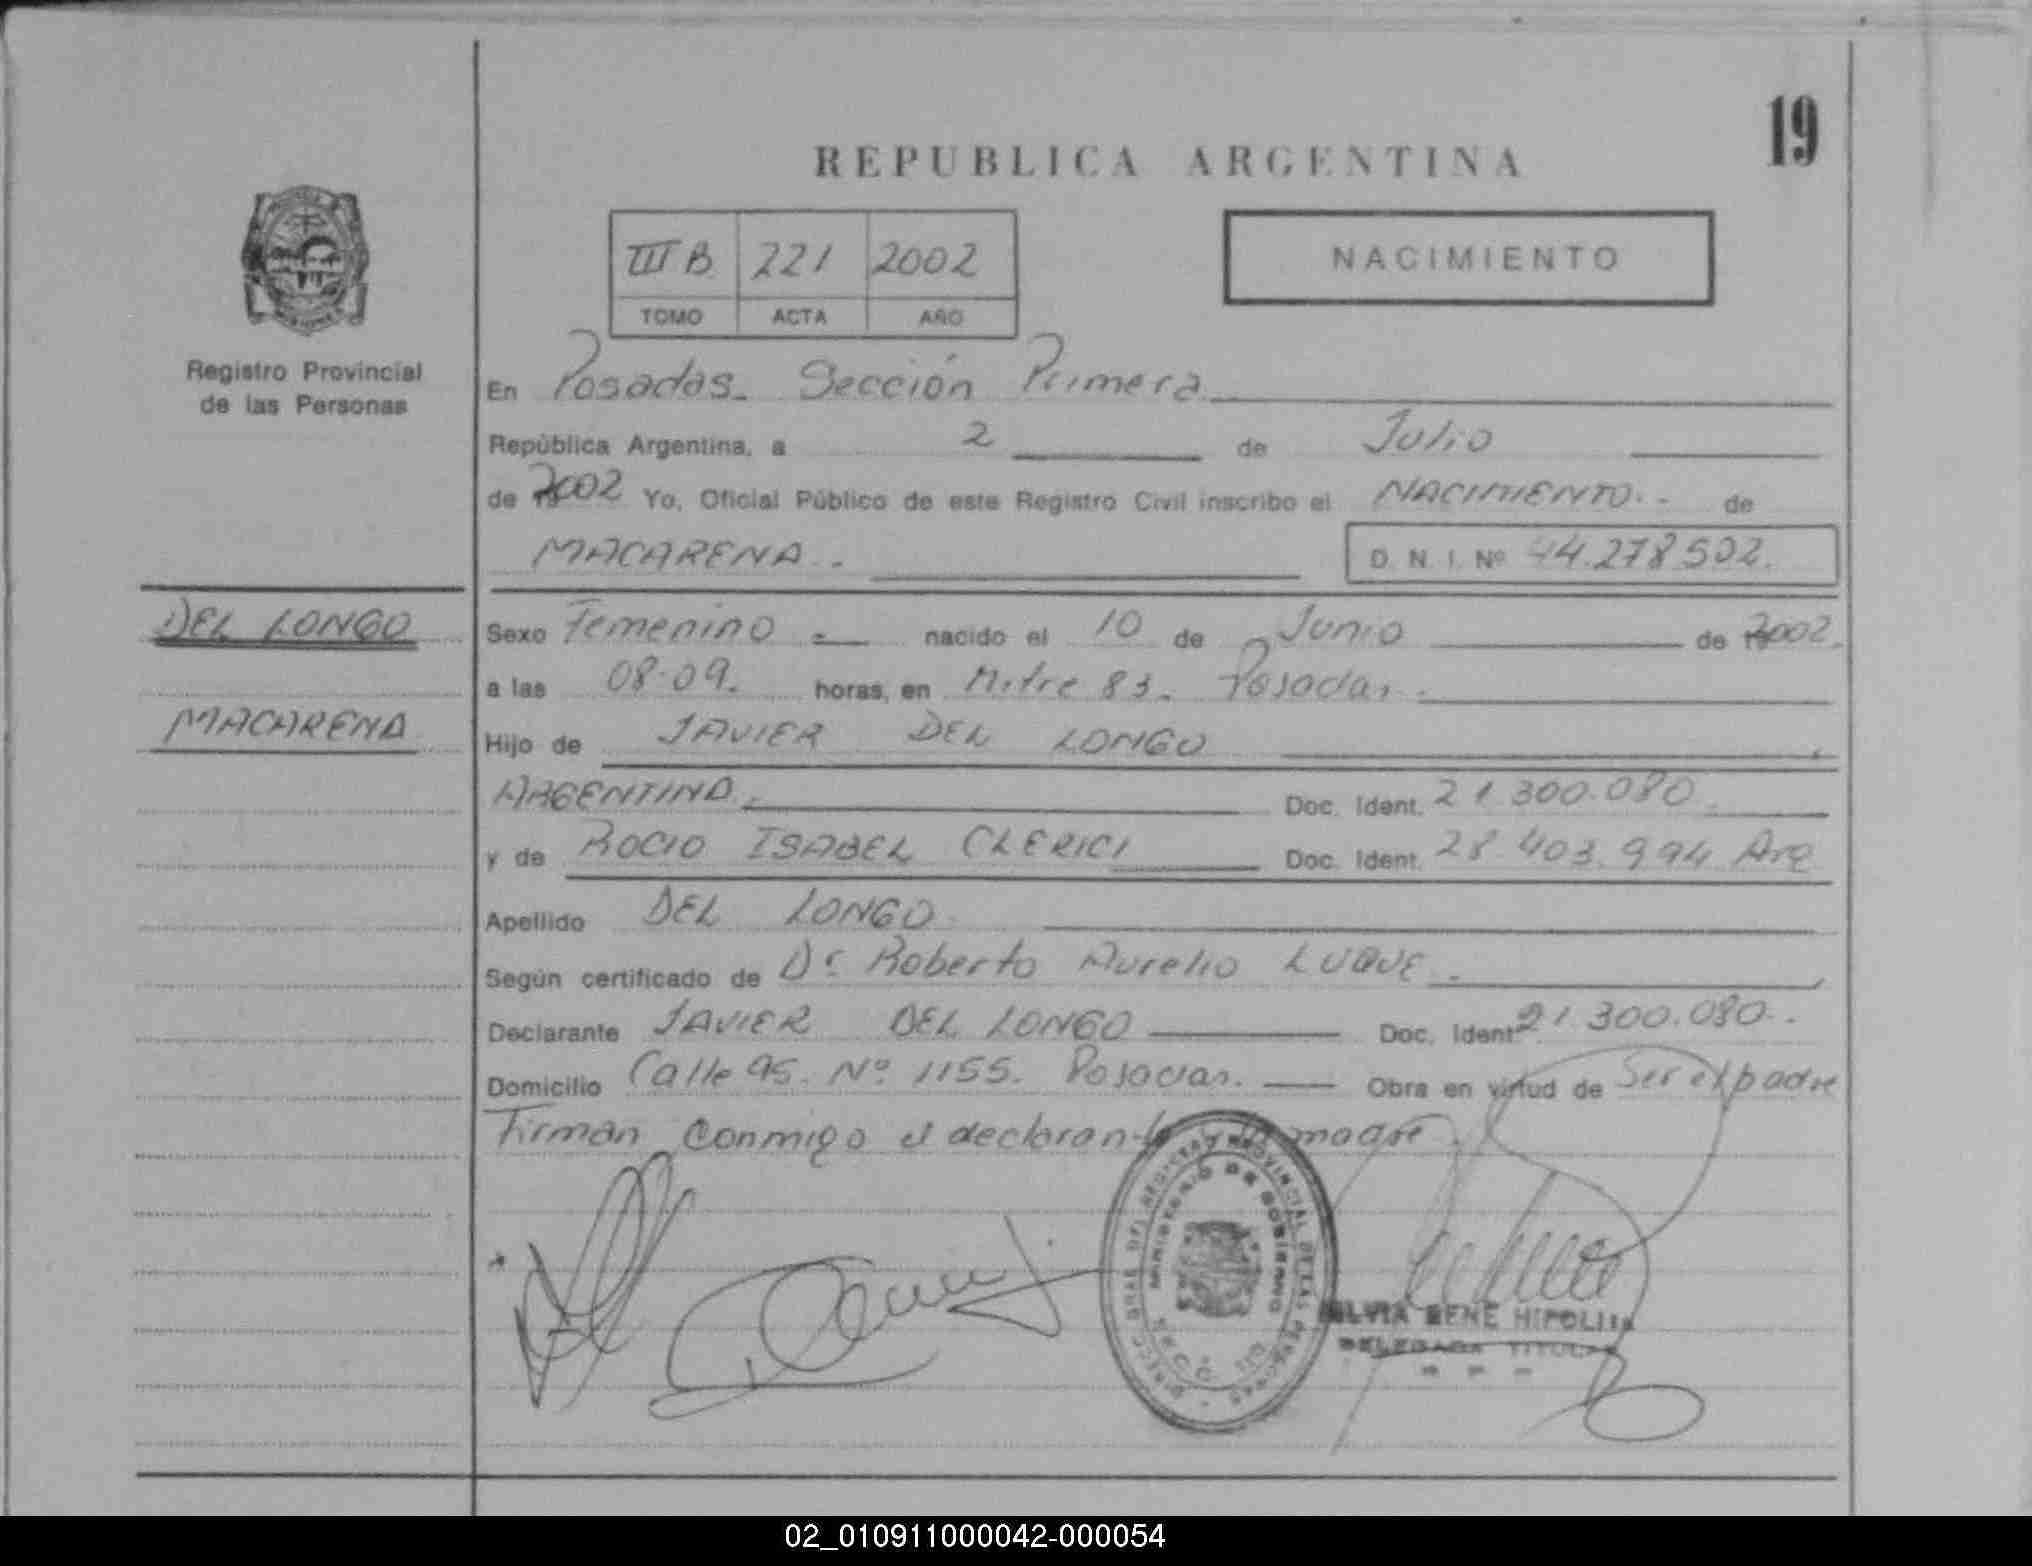 19
REPUBLICA ARGENTINA
III B 221 2002
TOMO ACTA AÑO
NACIMIENTO
Registro Provincial
de las Personas
En Posadas. Sección Primera
República Argentina, a 2 de Julio
de 2002 Yo, Oficial Público de este Registro Civil inscribo el NACIMIENTO.- de
MACARENA.- D. N. I. Nº 44.278502.
DEL LONGO
MACARENA
Sexo Femenino.- nacido el 10 de Junio de 2002.
a las 08.09. horas, en Mitre 83. Posadas.
Hijo de JAVIER DEL LONGO
ARGENTINO.- Doc. Ident. 21.300.080.
y de ROCIO ISABEL CLERICI Doc. Ident. 28.403.994 Arg
Apellido DEL LONGO.
Según certificado de Dr. Roberto Aurelio LUQUE.
Declarante JAVIER DEL LONGO Doc. Ident. 21.300.080.
Domicilio Calle 95. Nº 1155. Posadas. Obra en virtud de Ser el padre
Firman conmigo el declarante madre.
DIRECC. GRAL DEL REGISTRO PROVINCIAL DE LAS PERSONAS
MINISTERIO DE GOBIERNO
SILVIA HIPOLITA
DELEGADA TITULAR
02_010911000042-000054